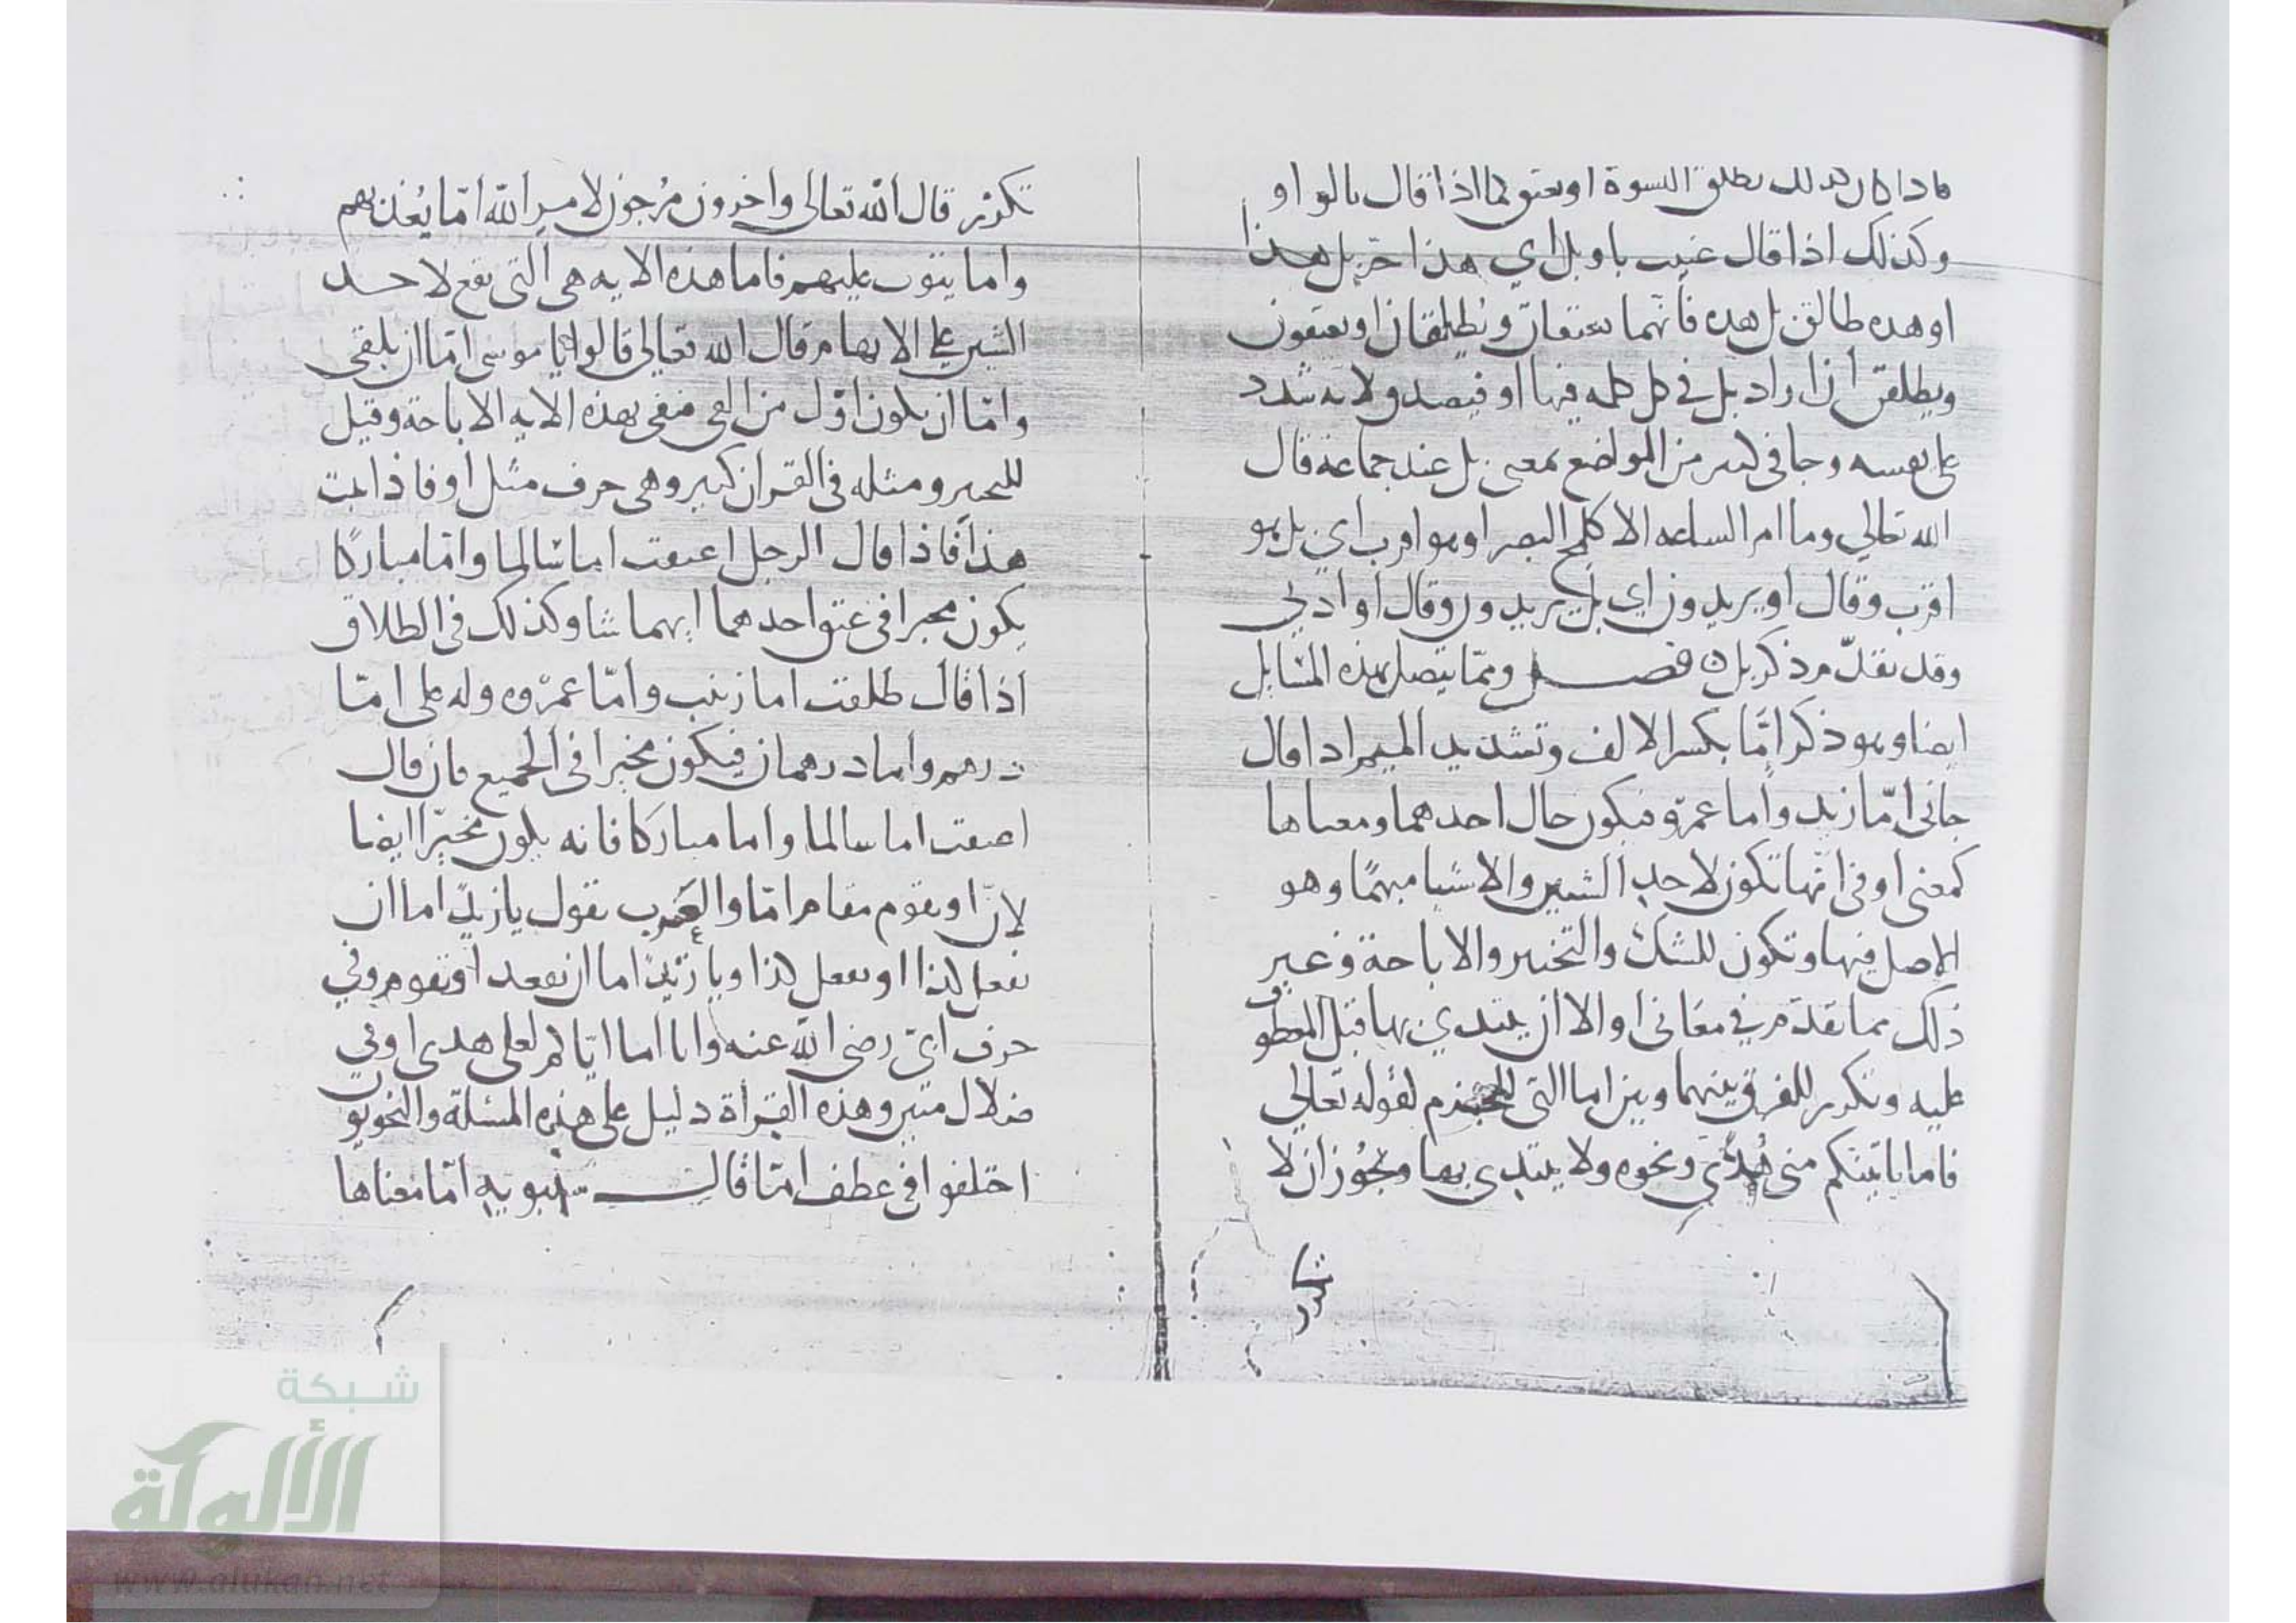 فاذا كان كذلك تطلق النسوة او يعتق كما اذا قال بالواو
وكذلك اذا قال عنيت باو بل اي هذا حر بل هذا
او هذه طالق بل هذه فانهما يعتقان ويطلقان او يعتقون
ويطلقن ان اراد بل في كل كلمه فيها او فيصدق لانه شدد
على نفسه وجا في كثير من المواضع بمعنى بل عند جماعة قال
الله تعالي وما امر الساعه الا كلمح البصر او هو اقرب اي بل هو
اقرب وقال او يزيدون اي بل يزيدون وقال او ادني
وقد تقدم ذكر بل ه فصل ومما يتصل بهذه المسايل
ايضا وهو ذكر امّا بكسر الالف وتشديد الميم اذا قال
جانى امّا زيد واما عمرو فيكون حال احدهما ومعناها
كمعنى او فى انها تكون لاحد الشيين والاشيا مبهمًا وهو
الاصل فيها وتكون للشك والتخيير والاباحة وغير
ذلك مما تقدم في معانى او الا ان يبتدي بها قبل المعطوف
عليه وتكرر للفرق بينهما وبين اما التى للجزم لقوله تعالي
فاما ياتينكم منى هدًى ونحوه ولا يبتدى بها ويجوز ان لا
تكرر
تكرر قال الله تعالى واخرون مرجون لامر الله امّا يعذبهم
واما يتوب عليهم فاما هذه الايه هى التى تقع لاحد
الشيين على الابهام قال الله تعالي قالوا يا موسى امّا ان تلقى
وامّا ان نكون اوّل من القى فنفى بهذه الايه الاباحة وقيل
للتخيير ومثله فى القران كثير وهى حرف مثل او فاذا ثبت
هذا فاذا قال الرجل اعتقت اما سالما وامّا مباركًا
يكون مخيرا فى عتق احدهما ايهما شا وكذلك فى الطلاق
اذا قال طلقت اما زينب وامّا عمرة وله على امّا
درهم واما درهمان فيكون مخيرا فى الجميع فان قال
اعتقت اما سالما واما مباركا فانه يكون مخيّرا ايضا
لانّ او يقوم مقام امّا والعرب تقول يا زيد اما ان
تفعل كذا او تفعل كذا ويا زيد اما ان تقعد او تقوم وفي
حرف ابىّ رضى الله عنه وانا اما اياكم لعلى هدى او في
ضلال مبين وهذه القراة دليل على هذه المسئلة والنحويون
اختلفوا فى عطف امّا قال سيبويه امّا معناها
شبكة
الألوكة
www.alukah.net